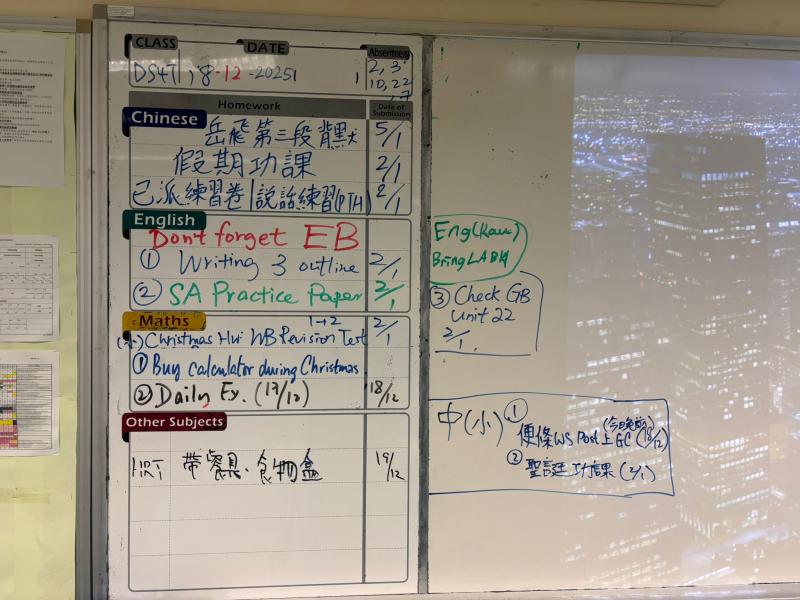 CLASS DATE Absentees
DS4T 18-12-2025 2, 3
10, 22
Homework Date of Submission
Chinese
岳飛第三段背默 5/1
假期功課 2/1
已派練習卷 說話練習(PTH) 2/1
English
Don't forget EB
① Writing 3 outline 2/1
② SA Practice Paper 2/1
Maths
1→2
(小) Christmas Hw WB Revision Test 2/1
① Buy calculator during Christmas
② Daily Ex. (17/12) 18/12
Other Subjects
HRT 帶餐具、食物盒 19/12
Eng (Kau)
Bring LA BK
③ Check GB
Unit 22
2/1
中(小) ① (今晚前)
便條WS Post 上 GC (18/12)
② 聖誕功課 (2/1)